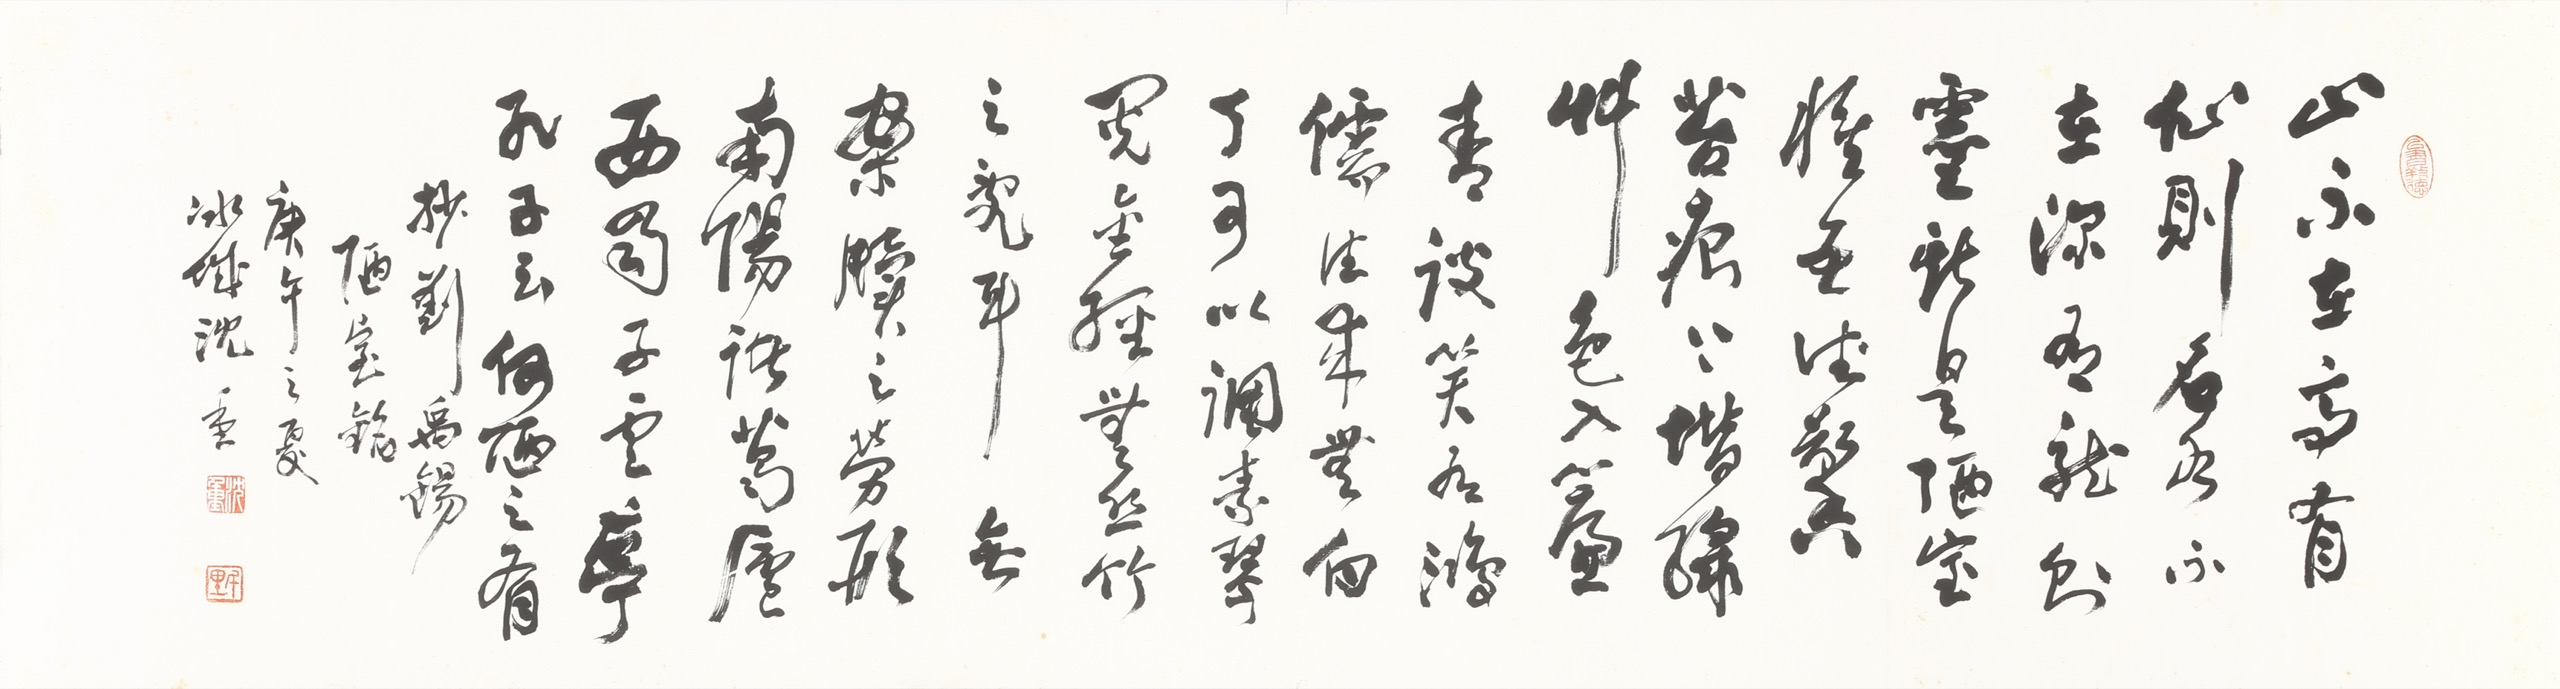 山不在高有
仙則名水不
在深有龍則
靈斯是陋室
惟吾德馨
苔痕上階綠
艸色入簾
青談笑有鴻
儒往來無白
丁可以調素琴
閱金經無絲竹
之亂耳無
案牘之勞形
南陽諸葛廬
西蜀子雲亭
孔子云何陋之有
抄劉禹錫
陋室銘
庚午之夏
冰城沈重
沈重
千里